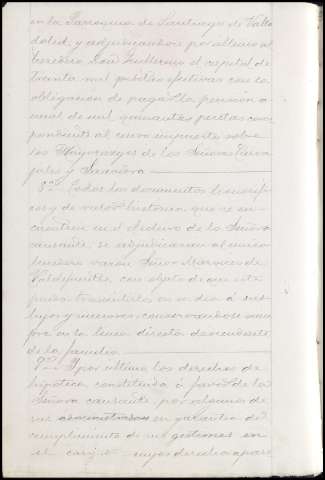 en la Parroquia de Santiago de Valla
dolid, y adjudicandose por ultimo al
heredero Don Guillermo el capital de
treinta mil pesetas efectivas con la
obligacion de pagar la pension a
nual de mil quinientas pesetas corres
pondiente al censo impuesto sobre
los Mayorazgos de los Señores
y
8ª. Todos los documentos
cos y de valor historico que se en
cuentren en el Archivo de la Señora
causante, se adjudicaran al unico
heredero varon Señor Marques de
con objeto de que este
pueda trasmitirlos en su dia á sus
hijos y sucesores conservandose siem
pre en la linea directa descendiente
de la familia.
9ª. Y por ultimo los derechos de
hipoteca constituida á favor de la
Señora causante por algunos de
sus administradores en garantia del
cumplimiento de sus gestiones en
el cargo cuyos derechos apare